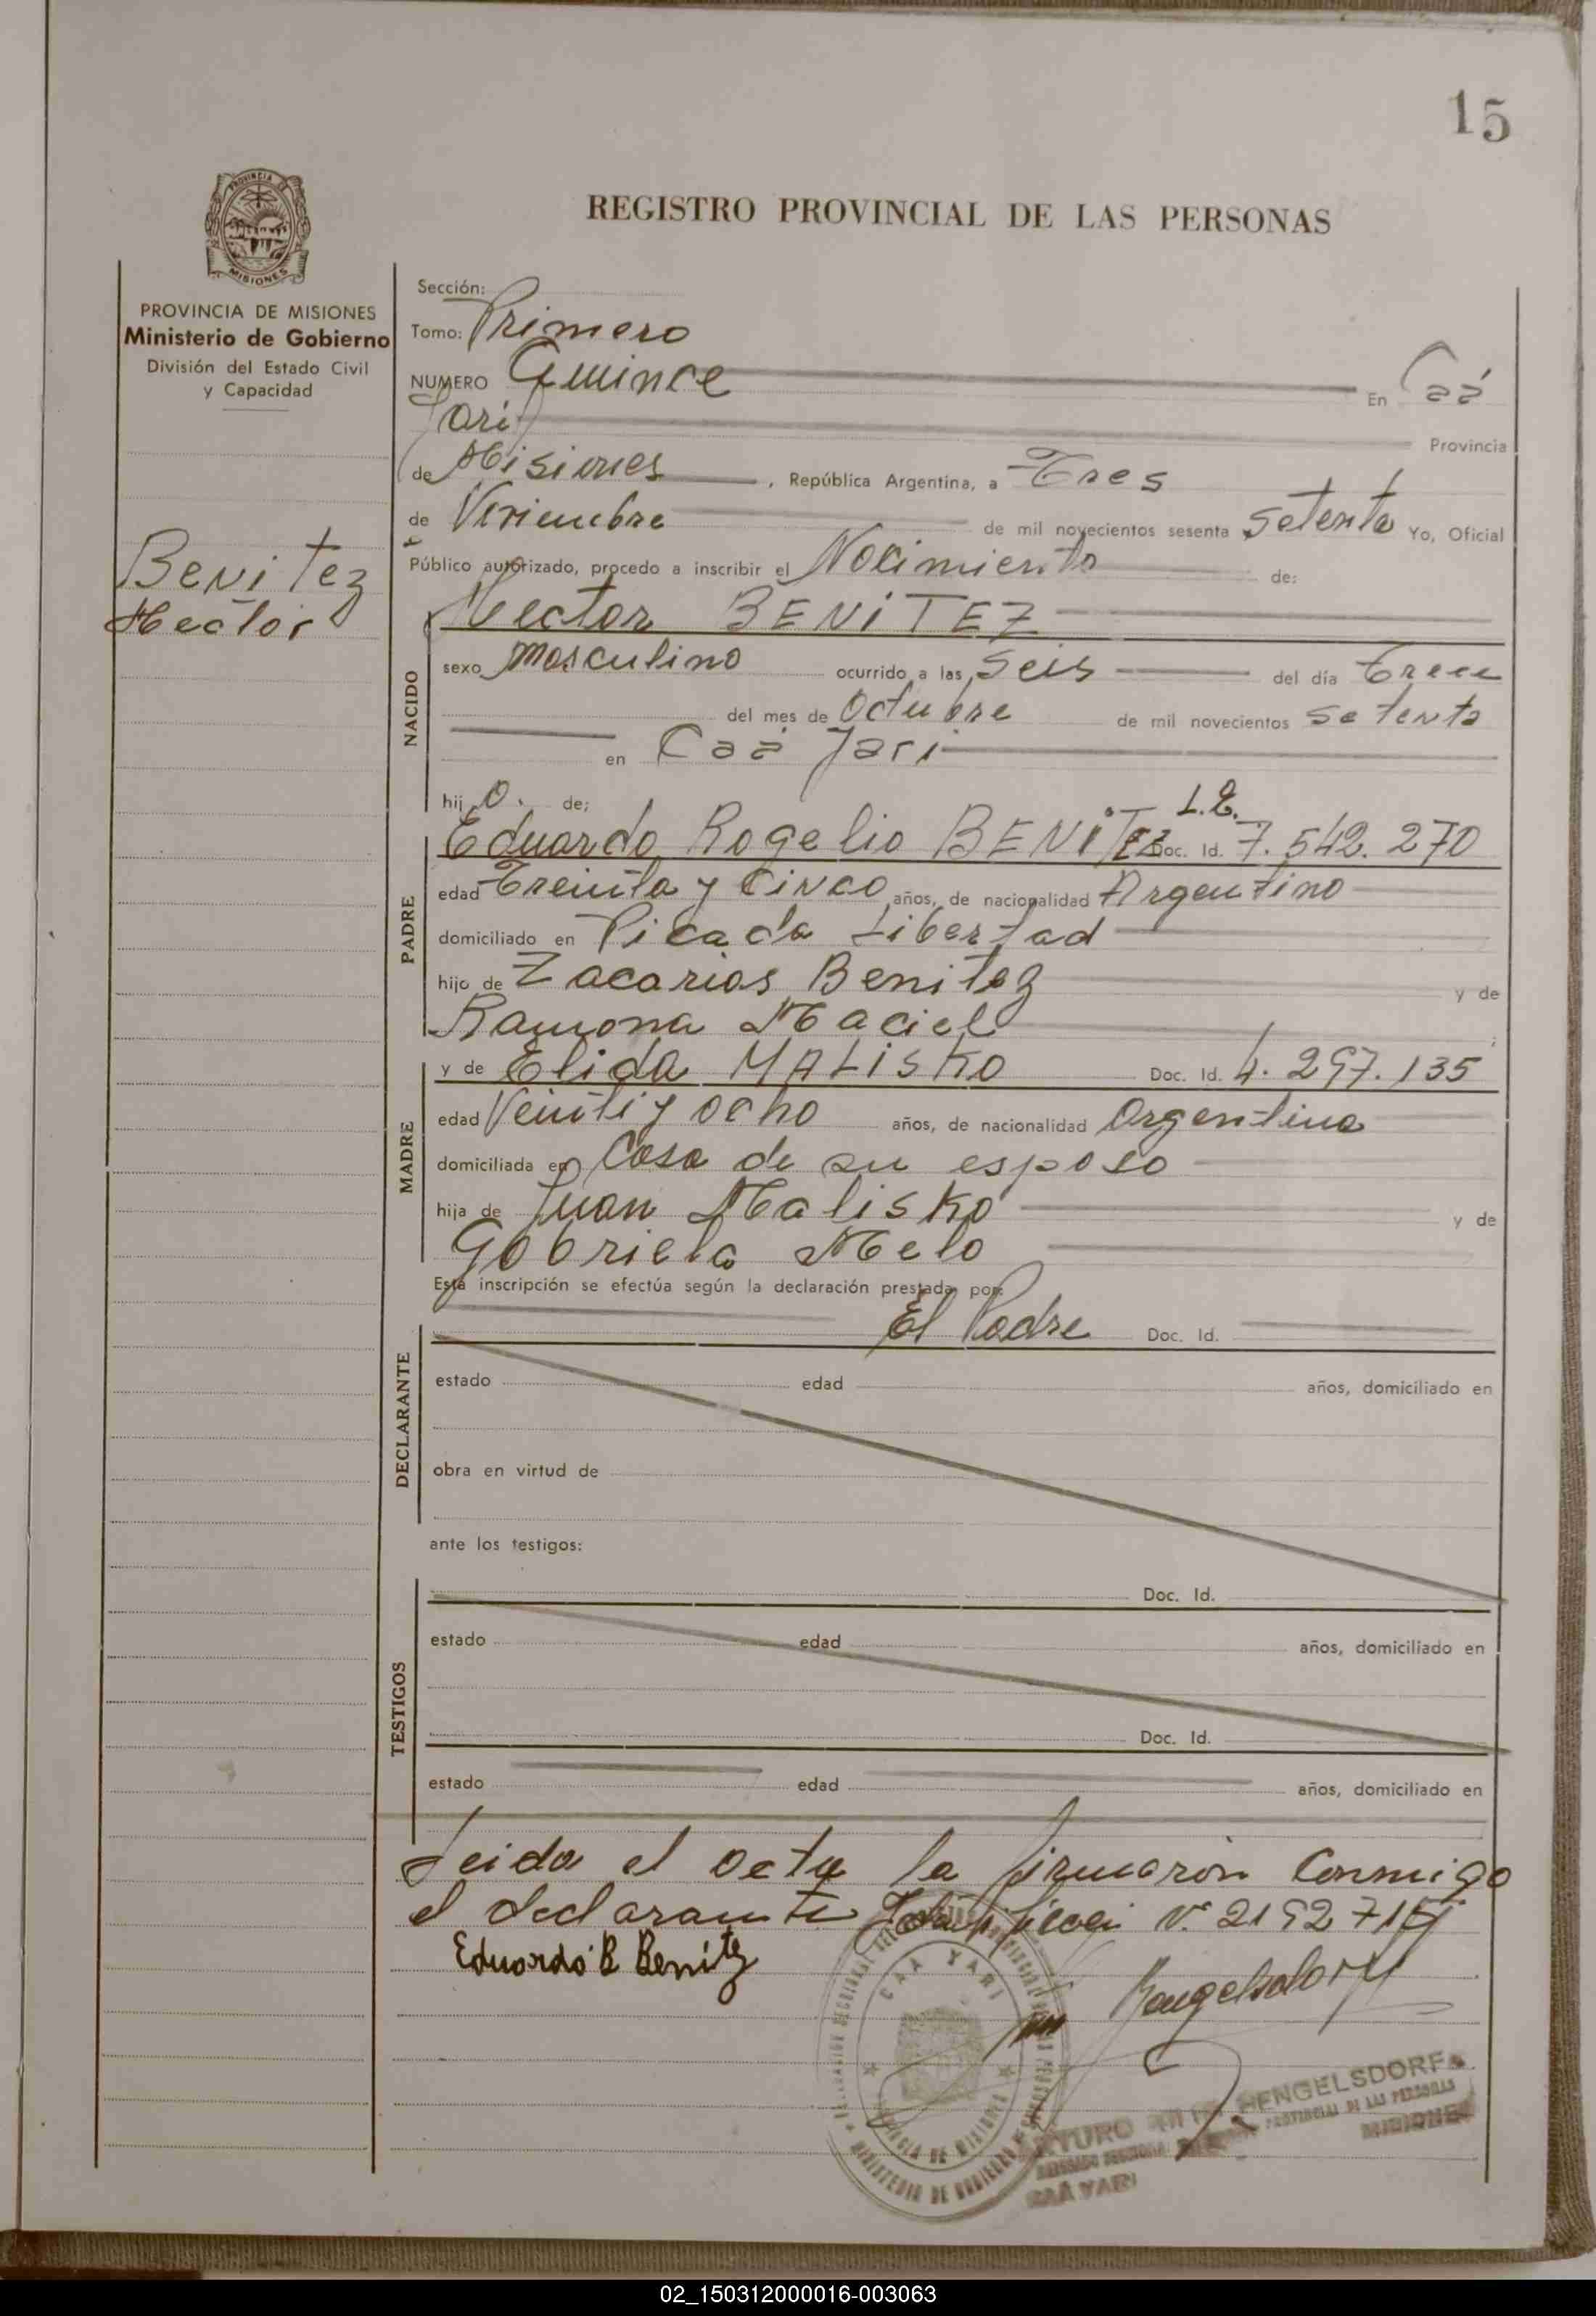 15
REGISTRO PROVINCIAL DE LAS PERSONAS
PROVINCIA DE MISIONES
PROVINCIA DE MISIONES
Ministerio de Gobierno
División del Estado Civil
y Capacidad
Benitez
Hector
Sección:
Tomo: Primero
NUMERO Quince En Caá
Yari Provincia
de Misiones, República Argentina, a Tres
de Noviembre de mil novecientos sesenta setenta Yo, Oficial
Público autorizado, procedo a inscribir el Nacimiento de:
Hector BENITEZ
NACIDO
sexo Masculino ocurrido a las Seis del día Trece
del mes de Octubre de mil novecientos setenta
en Caá Yari
hijo. de;
PADRE
L.E.
Eduardo Rogelio BENITEZ Doc. Id. 7.542.270
edad Treinta y Cinco años, de nacionalidad Argentino
domiciliado en Picada Libertad
hijo de Zacarias Benitez y de
Ramona Maciel
MADRE
y de Elida MALISKO Doc. Id. 4.297.135
edad Veinti y ocho años, de nacionalidad Argentina
domiciliada en Casa de su esposo
hija de Juan Malisko y de
Gabriela Melo
Esta inscripción se efectúa según la declaración prestada por:
El Padre Doc. Id.
DECLARANTE
estado edad años, domiciliado en
obra en virtud de
ante los testigos:
Doc. Id.
TESTIGOS
estado edad años, domiciliado en
Doc. Id.
estado edad años, domiciliado en
Leida el acta la firmaron Conmigo
el declarante
Eduardo R Benitez
CAA YARI
PROVINCIA DE MISIONES
MINISTERIO DE GOBIERNO
HENGELSDORF
PROVINCIAL DE LAS PERSONAS
MISIONES
CAA YARI
02_150312000016-003063